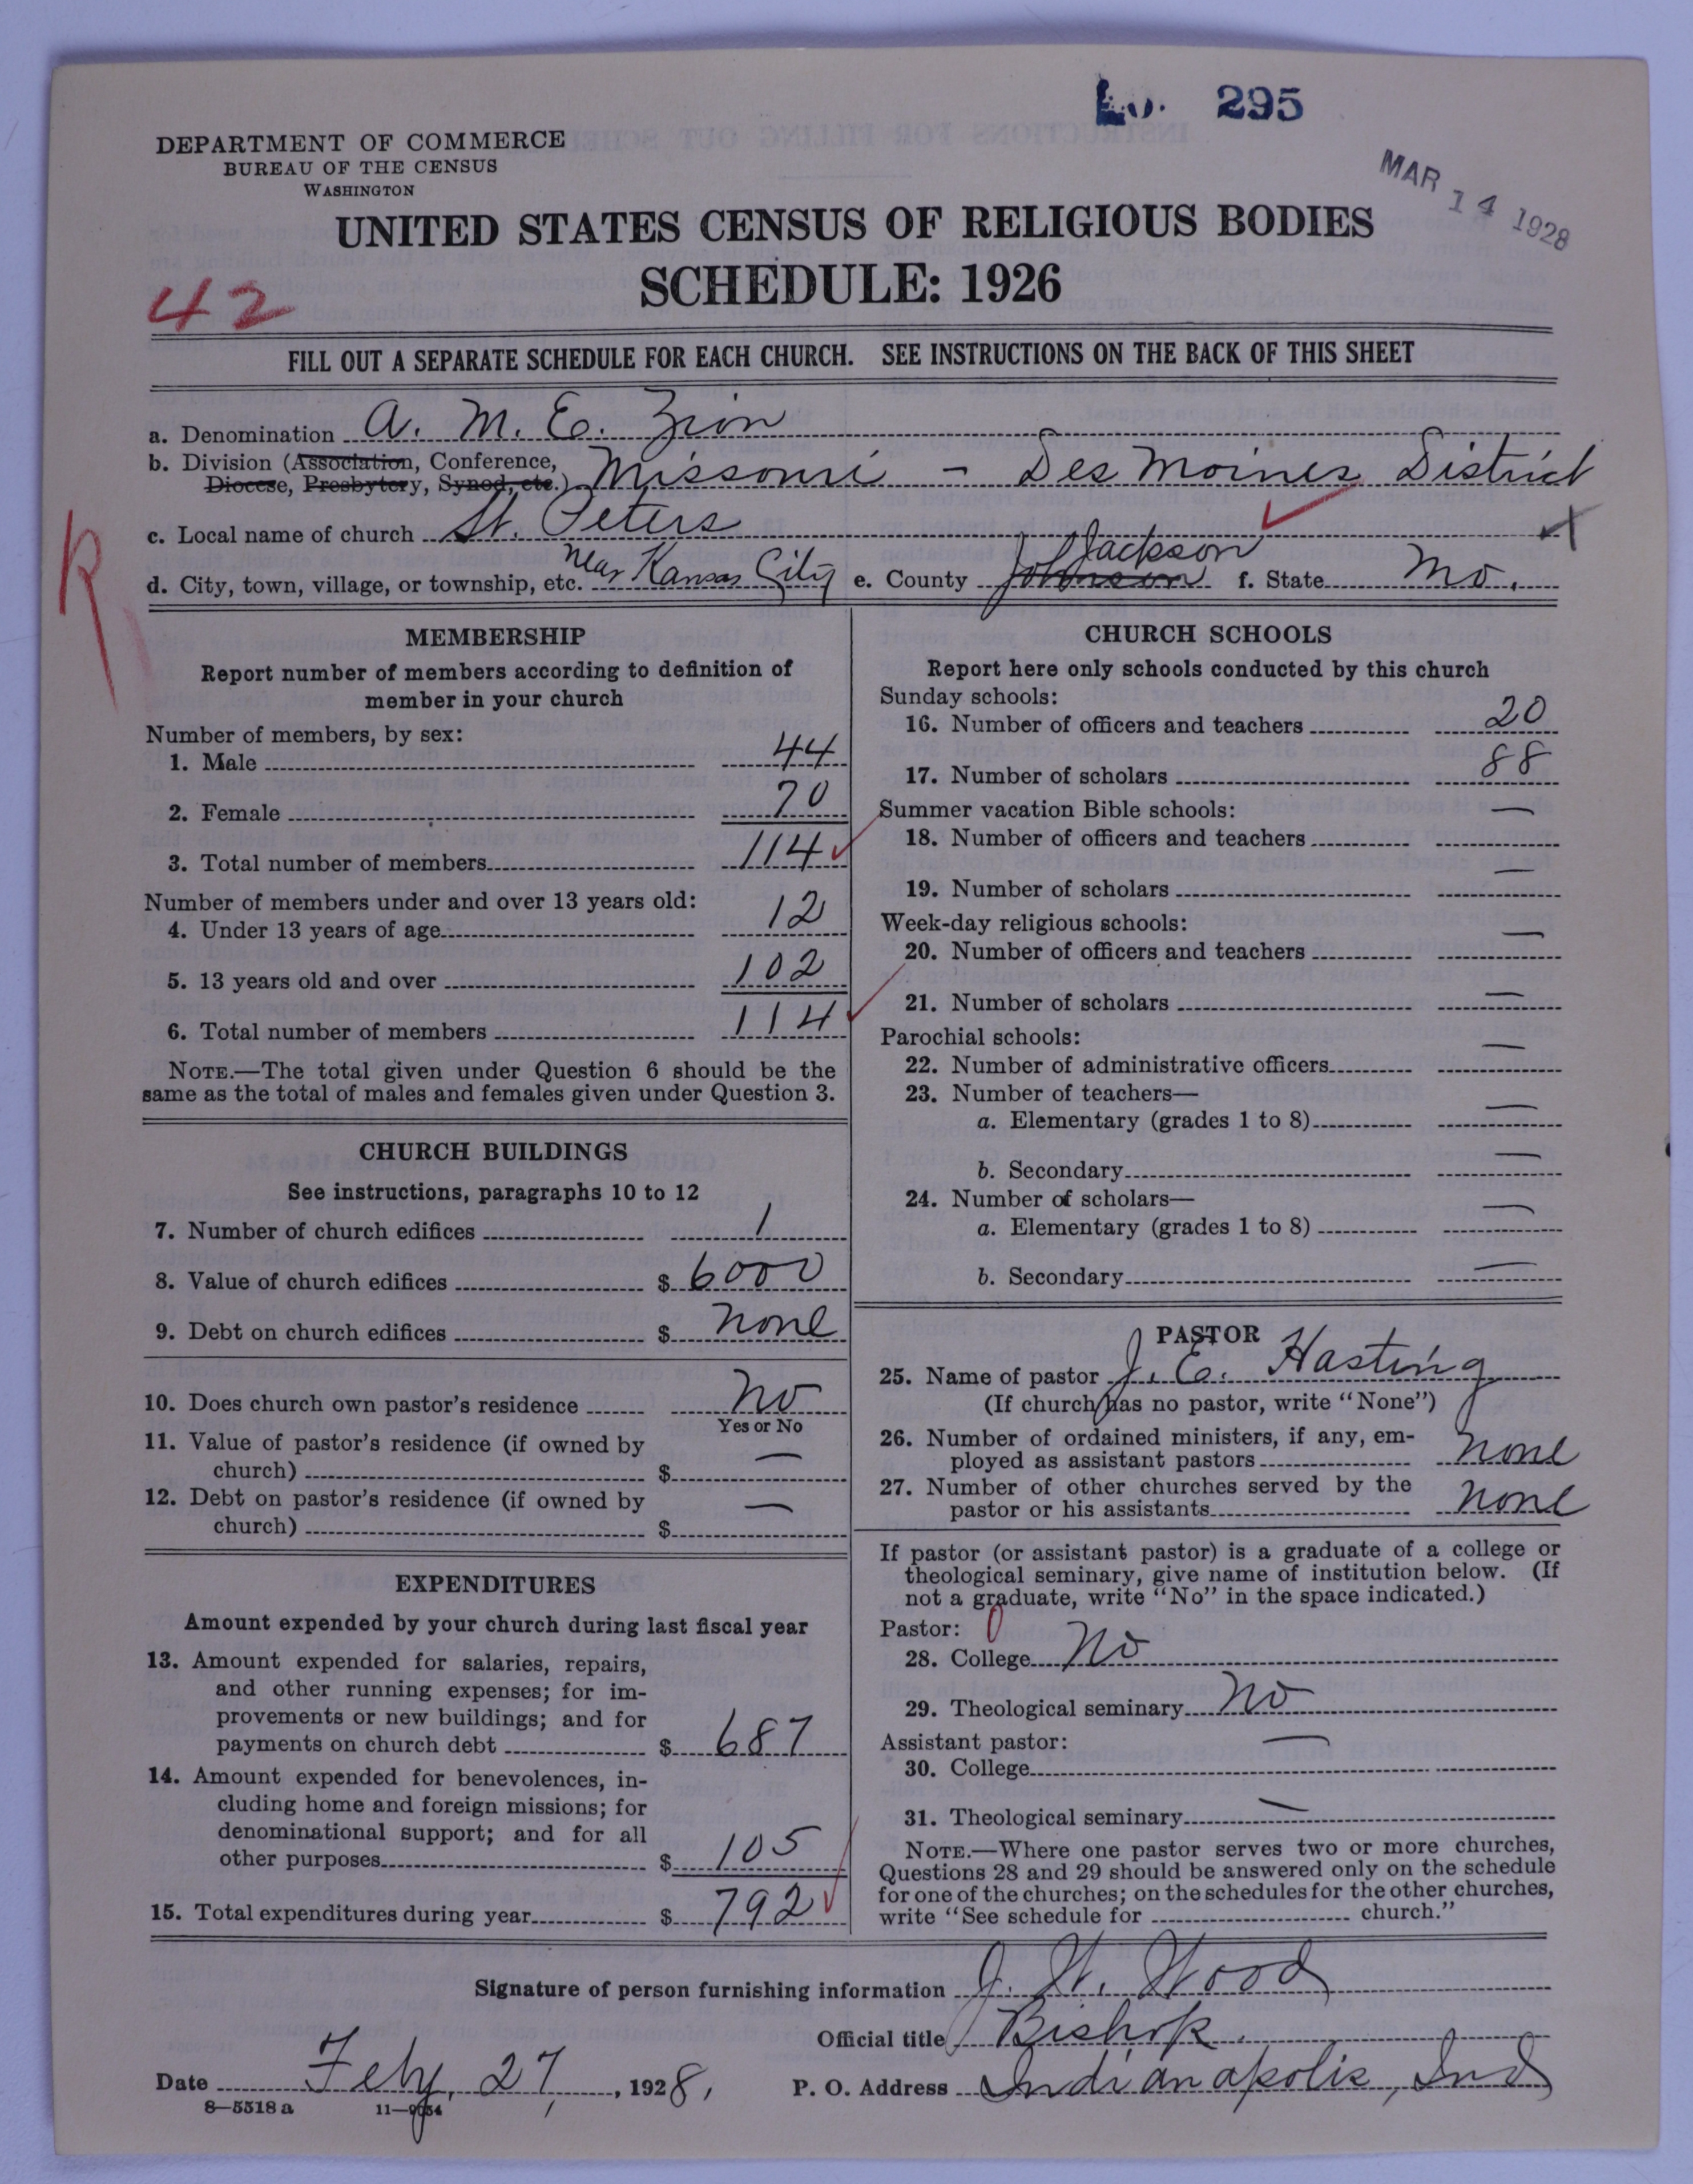 295
DEPARTMENT OF COMMERCE
BUREAU OF THE CENSUS
WASHINGTON
MAR 14 1928
UNITED STATES CENSUS OF RELIGIOUS BODIES
SCHEDULE: 1926
42
FILL OUT A SEPARATE SCHEDULE FOR EACH CHURCH. SEE INSTRUCTIONS ON THE BACK OF THIS SHEET
a. Denomination A. M. E. Zion
b. Division (Association, Conference,
Diocese, Presbytery, Synod, etc.) Missouri - Des Moines District
c. Local name of church St. Peters
d. City, town, village, or township, etc. near Kansas City e. County Johnson Jackson f. State Mo.
R
MEMBERSHIP
Report number of members according to definition of
member in your church
Number of members, by sex:
1. Male 44
2. Female 70
3. Total number of members 114
Number of members under and over 13 years old:
4. Under 13 years of age 12
5. 13 years old and over 102
6. Total number of members 114
NOTE.—The total given under Question 6 should be the
same as the total of males and females given under Question 3.
CHURCH BUILDINGS
See instructions, paragraphs 10 to 12
7. Number of church edifices 1
8. Value of church edifices $ 6000
9. Debt on church edifices $ none
10. Does church own pastor's residence no
Yes or No
11. Value of pastor's residence (if owned by
church) $ —
12. Debt on pastor's residence (if owned by
church) $ —
EXPENDITURES
Amount expended by your church during last fiscal year
13. Amount expended for salaries, repairs,
and other running expenses; for im-
provements or new buildings; and for
payments on church debt $ 687
14. Amount expended for benevolences, in-
cluding home and foreign missions; for
denominational support; and for all
other purposes $ 105
15. Total expenditures during year $ 792
CHURCH SCHOOLS
Report here only schools conducted by this church
Sunday schools:
16. Number of officers and teachers 20
17. Number of scholars 88
Summer vacation Bible schools:
18. Number of officers and teachers —
19. Number of scholars —
Week-day religious schools:
20. Number of officers and teachers —
21. Number of scholars —
Parochial schools:
22. Number of administrative officers —
23. Number of teachers—
a. Elementary (grades 1 to 8) —
b. Secondary —
24. Number of scholars—
a. Elementary (grades 1 to 8) —
b. Secondary —
PASTOR
25. Name of pastor J. E. Hasting
(If church has no pastor, write "None")
26. Number of ordained ministers, if any, em-
ployed as assistant pastors none
27. Number of other churches served by the
pastor or his assistants none
If pastor (or assistant pastor) is a graduate of a college or
theological seminary, give name of institution below. (If
not a graduate, write "No" in the space indicated.)
Pastor: 0
28. College No
29. Theological seminary No
Assistant pastor:
30. College —
31. Theological seminary —
NOTE.—Where one pastor serves two or more churches,
Questions 28 and 29 should be answered only on the schedule
for one of the churches; on the schedules for the other churches,
write "See schedule for church."
Signature of person furnishing information J. W. Wood
Official title Bishop.
Date Feby. 27, 1928, P. O. Address Indianapolis, Ind
8—5518 a 11—9054